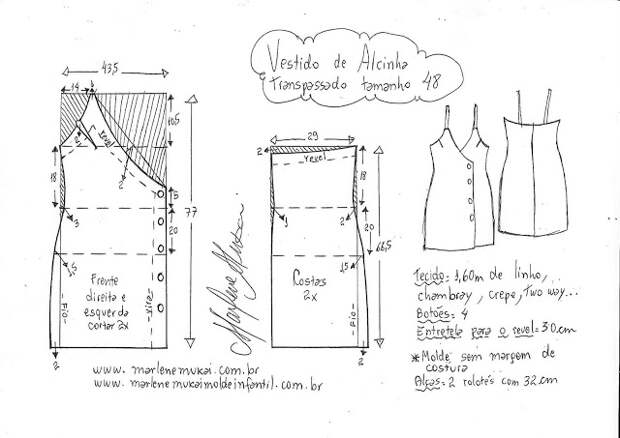 Vestido de Alcinha
Transpassado tamanho 48
43,5
14
10,5
revel
2
18
5
3
20
77
1,5
Frente
direita e
esquerda
cortar 2x
vira
fio
2
29
2
revel
18
1
2
20
66,5
1,5
Costas
2x
fio
2
Marlene Mukai
Tecido = 1,60m de linho,...
chambray, crepe, Two way...
Botões = 4
Entretela para o revel = 30cm
*Molde sem margem de
costura
Alças = 2 rolotês com 32cm
www.marlenemukai.com.br
www.marlenemukaimoldeinfantil.com.br